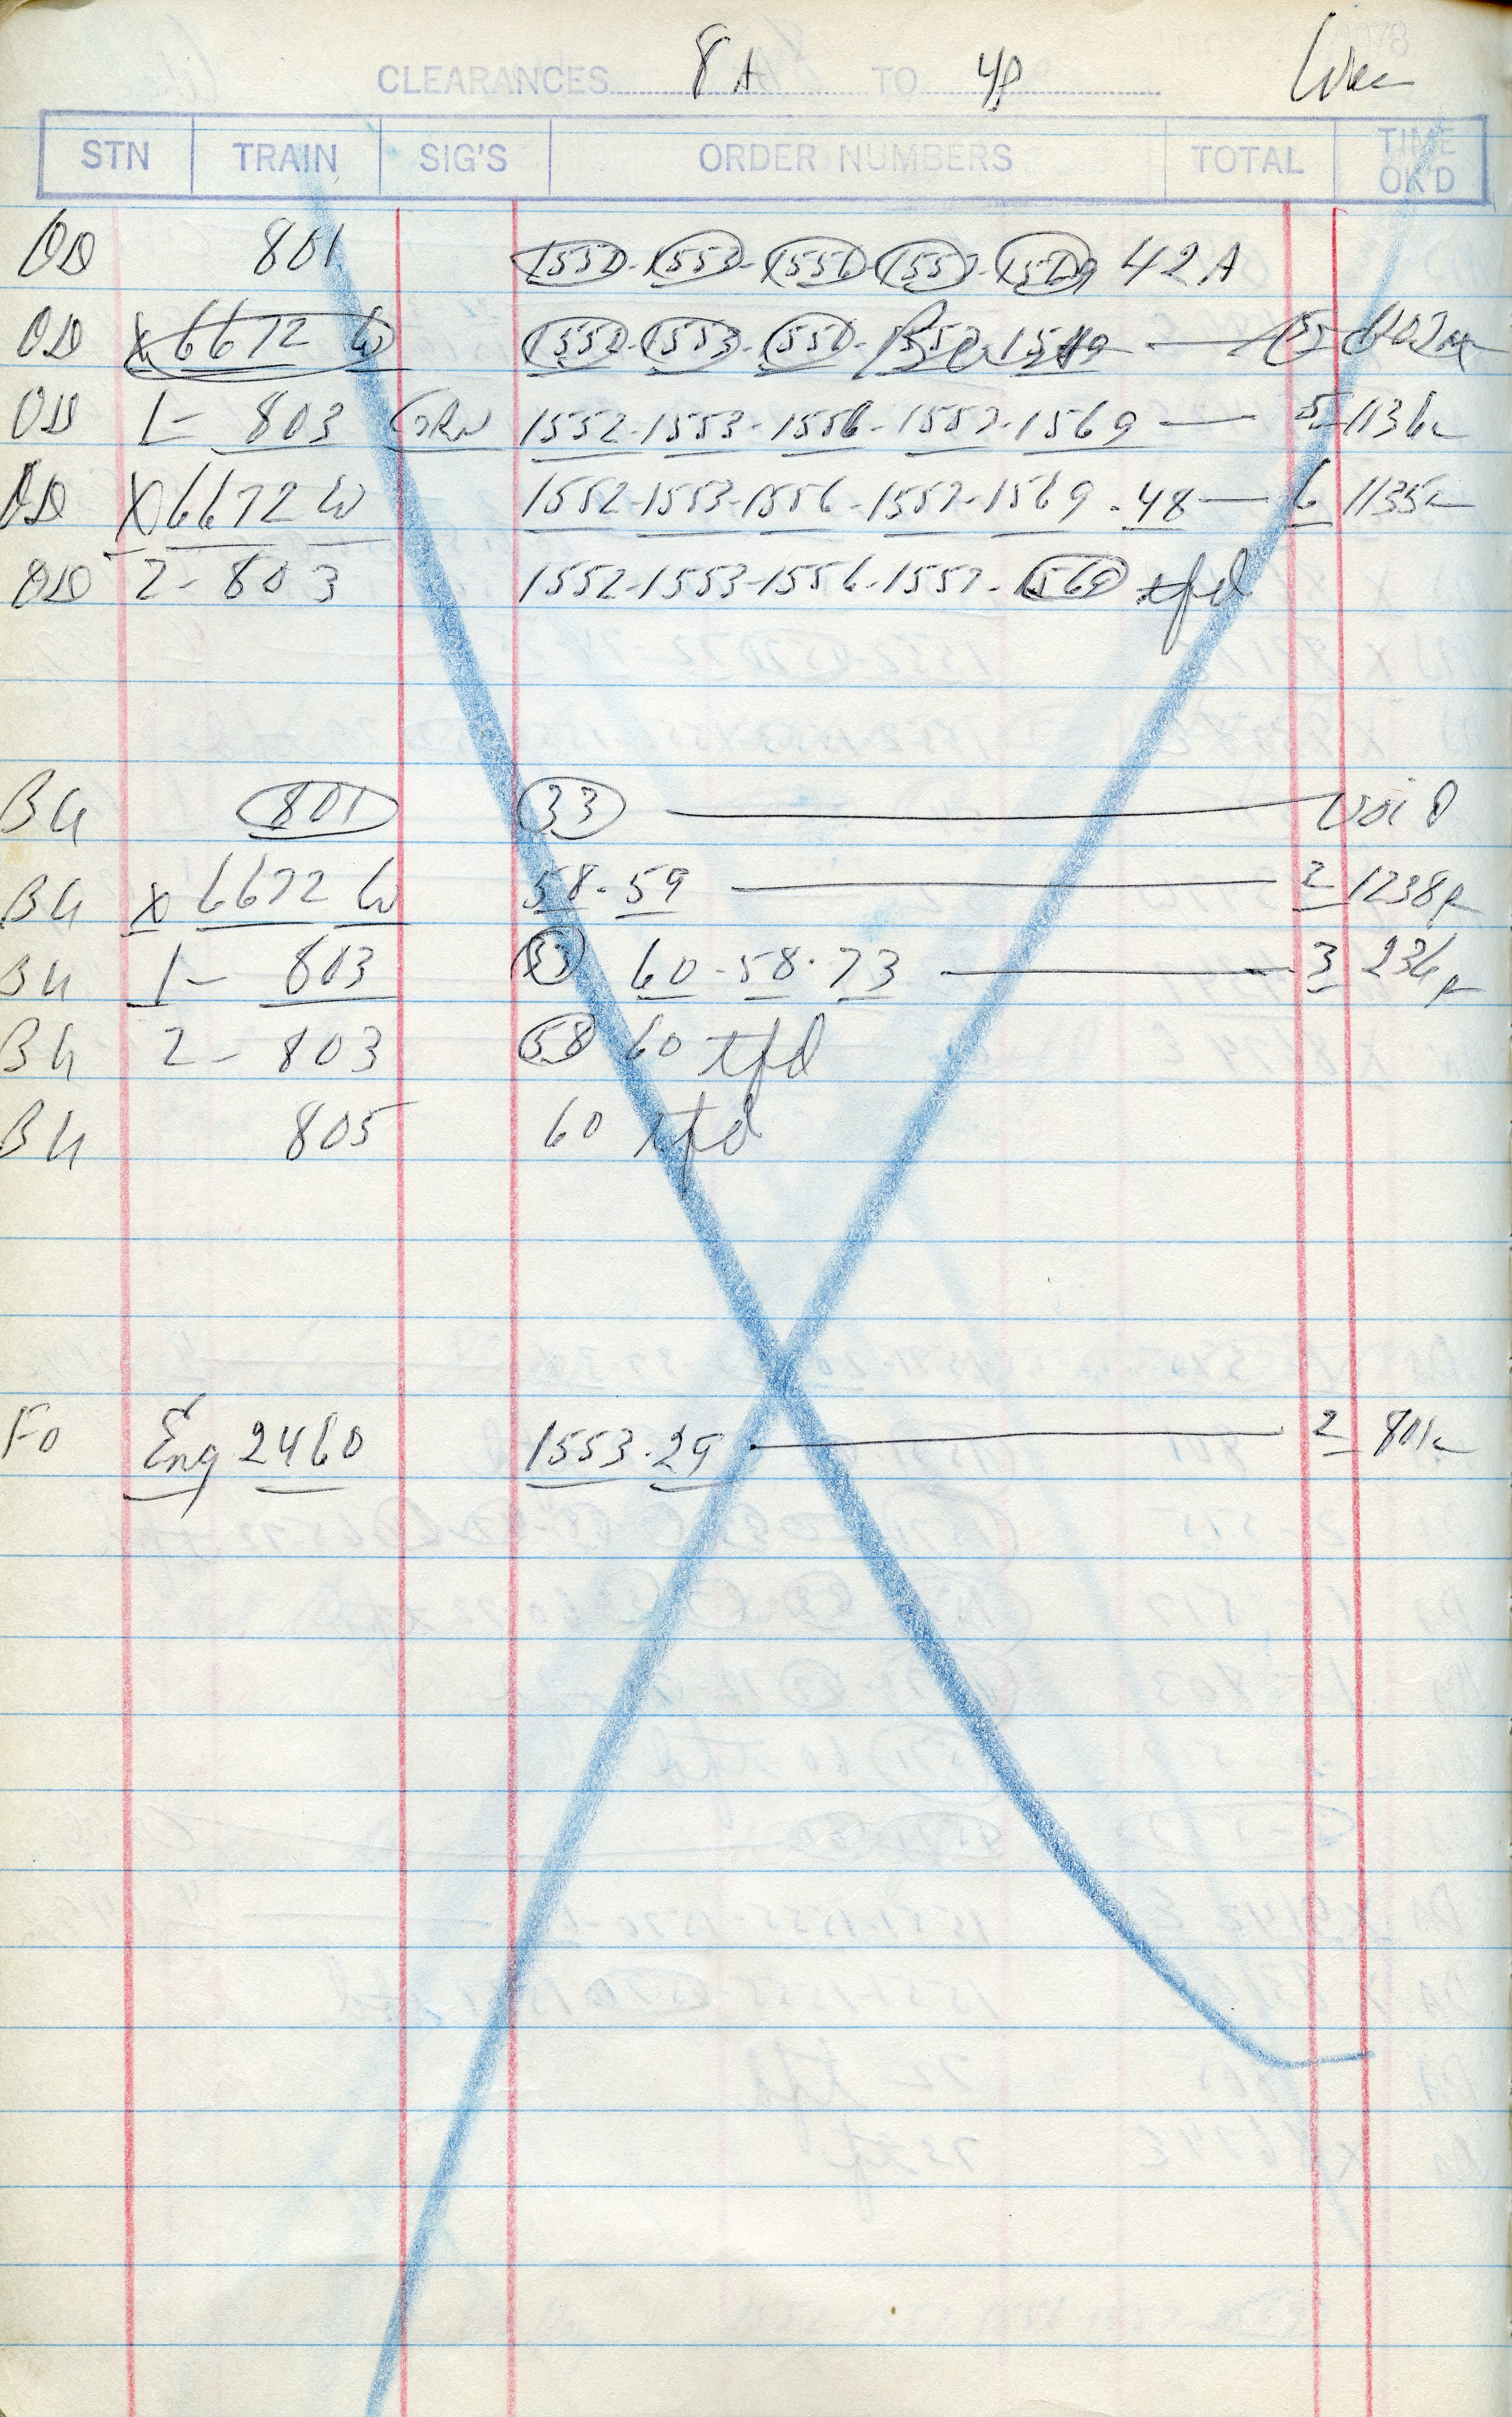 CLEARANCES 8A TO 4P
STN TRAIN SIG'S ORDER NUMBERS TOTAL TIME OK'D
OD 801 1552-1553-1556-1557-1569 42A
OD X6672 W 1552-1553-1556-1557-1549 5
OD 1- 803 GRN 1552-1553-1556-1557-1569 5 1136
OD X6672 W 1552-1553-1556-1557-1569-48 6 1135
OD 2-803 1552-1553-1556-1557-1569 tfd
BU 801 33 void
BU X 6672 W 58-59 2 1238P
BU 1- 803 33 60-58-73 3 236P
BU 2- 803 58 60 tfd
BU 805 60 tfd
FO Eng 2460 1553-29 2 801